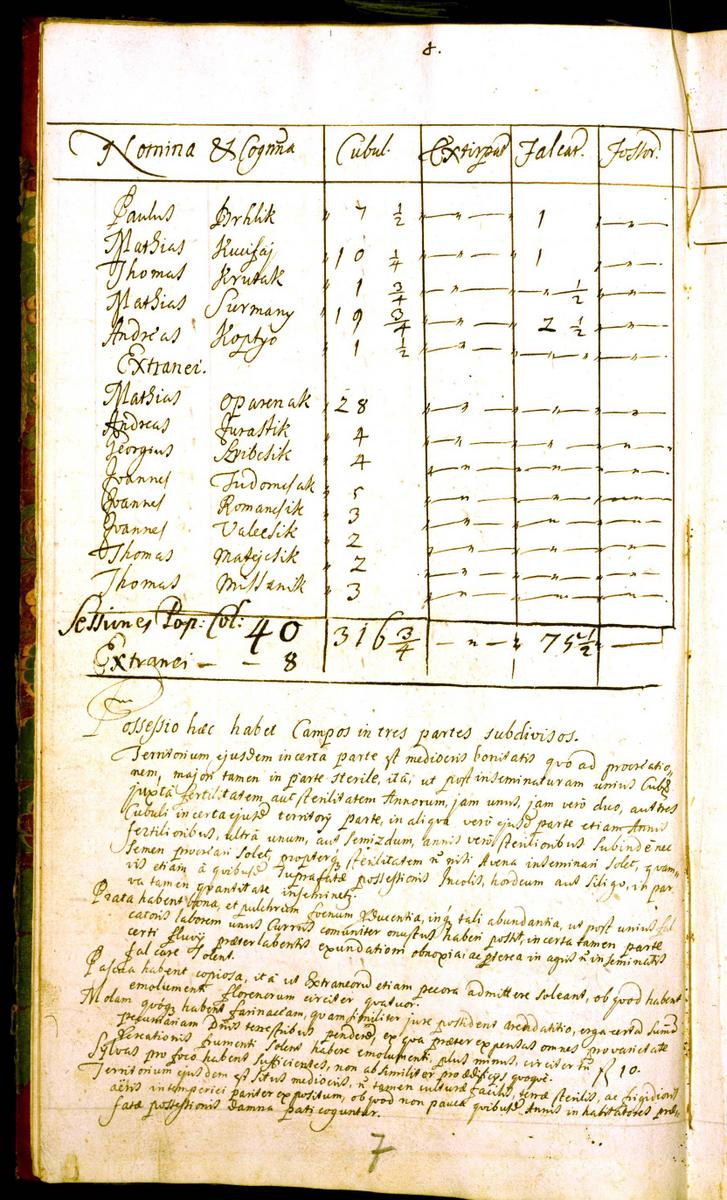 8.
Nomina & Cognña Cubul. Extirpat Falcat. Fossor.
Paulus Brhlik " 7 ½ — " — 1 — " —
Mathias Kucifaj " 10 ¼ — " — 1 — " —
Thomas Krutak " 1 ¾ — " — " — ½ — " —
Mathias Surmany " 19 ¾ — " — 2 ½ — " —
Andreas Koptyo " 1 ½ — " — — " — — " —
Extranei.
Mathias Oparenak " 28 — " — — " — — " —
Andreas Jurastik " 4 — " — — " — — " —
Georgius " 4 — " — — " — — " —
Joannes Tudomesak " 5 — " — — " — — " —
Joannes Romancsik " 3 — " — — " — — " —
Joannes Valecsik " 2 — " — — " — — " —
Thomas Matejcsik " 2 — " — — " — — " —
Thomas " 3 — " — — " — — " —
Sessiones Pop: Col: 40 316 ¾ — " — " 75 ½ —
Extranei — — 8
Possessio hæc habet Campos in tres partes subdivisos.
Territorium ejusdem in certa parte est mediocris bonitatis quo ad procreatio-
nem, majori tamen in parte sterile, ità, ut post inseminaturam unius Cubli
juxtà fertilitatem aut sterilitatem Annorum, jam unus, jam verò duo, aut tres
Cubuli in certa ejusd territorij parte, in aliqua verò ejusd parte etiam Annis
fertilioribus, ultrà unum, aut semizdum, annis verò sterilioribus subinde nec
semen procreari solet, propterq sterilitatem ñ nisi Avena inseminari solet, quam-
vis etiam à quibusd suprafatæ possessionis Incolis, hordeum aut siligo, in par-
va tamen quantitate
Prata habent bona, et pulchrum foenum producentia, inq tali abundantia, ut post unius fal-
catoris laborem unus Currus comuniter onustus haberi possit, in certa tamen parte
certi fluvij præterlabentis exundationi obnoxia ac præterea in agris ñ inseminatis
falcare solent.
Pascua habent copiosa, ità ut Extraneord etiam pecora admittere soleant, ob quod habent
emolumenti florenorum circiter quatuor.
Molam quoq habent farinaceam, quam similiter jure possident arendatitio, erga certa sumã
pecuniariam Dñis terrestribus pendend, ex qua præter expensas omnes pro varietate
procreationis frumenti solent habere emolumenti, plus minus, circiter ñ fl 10.
Sylvas pro foco habent sufficientes, non absimiliter pro ædificijs quoque.
Territorium ejusdem est situs mediocris, ñ tamen culturæ facilis, terræ sterilis, ac frigidioris
aëris intemperiei pariter expositum, ob quod non pauca quibusd Annis inhabitatores præ-
fatæ possessionis damna pati coguntur.
7